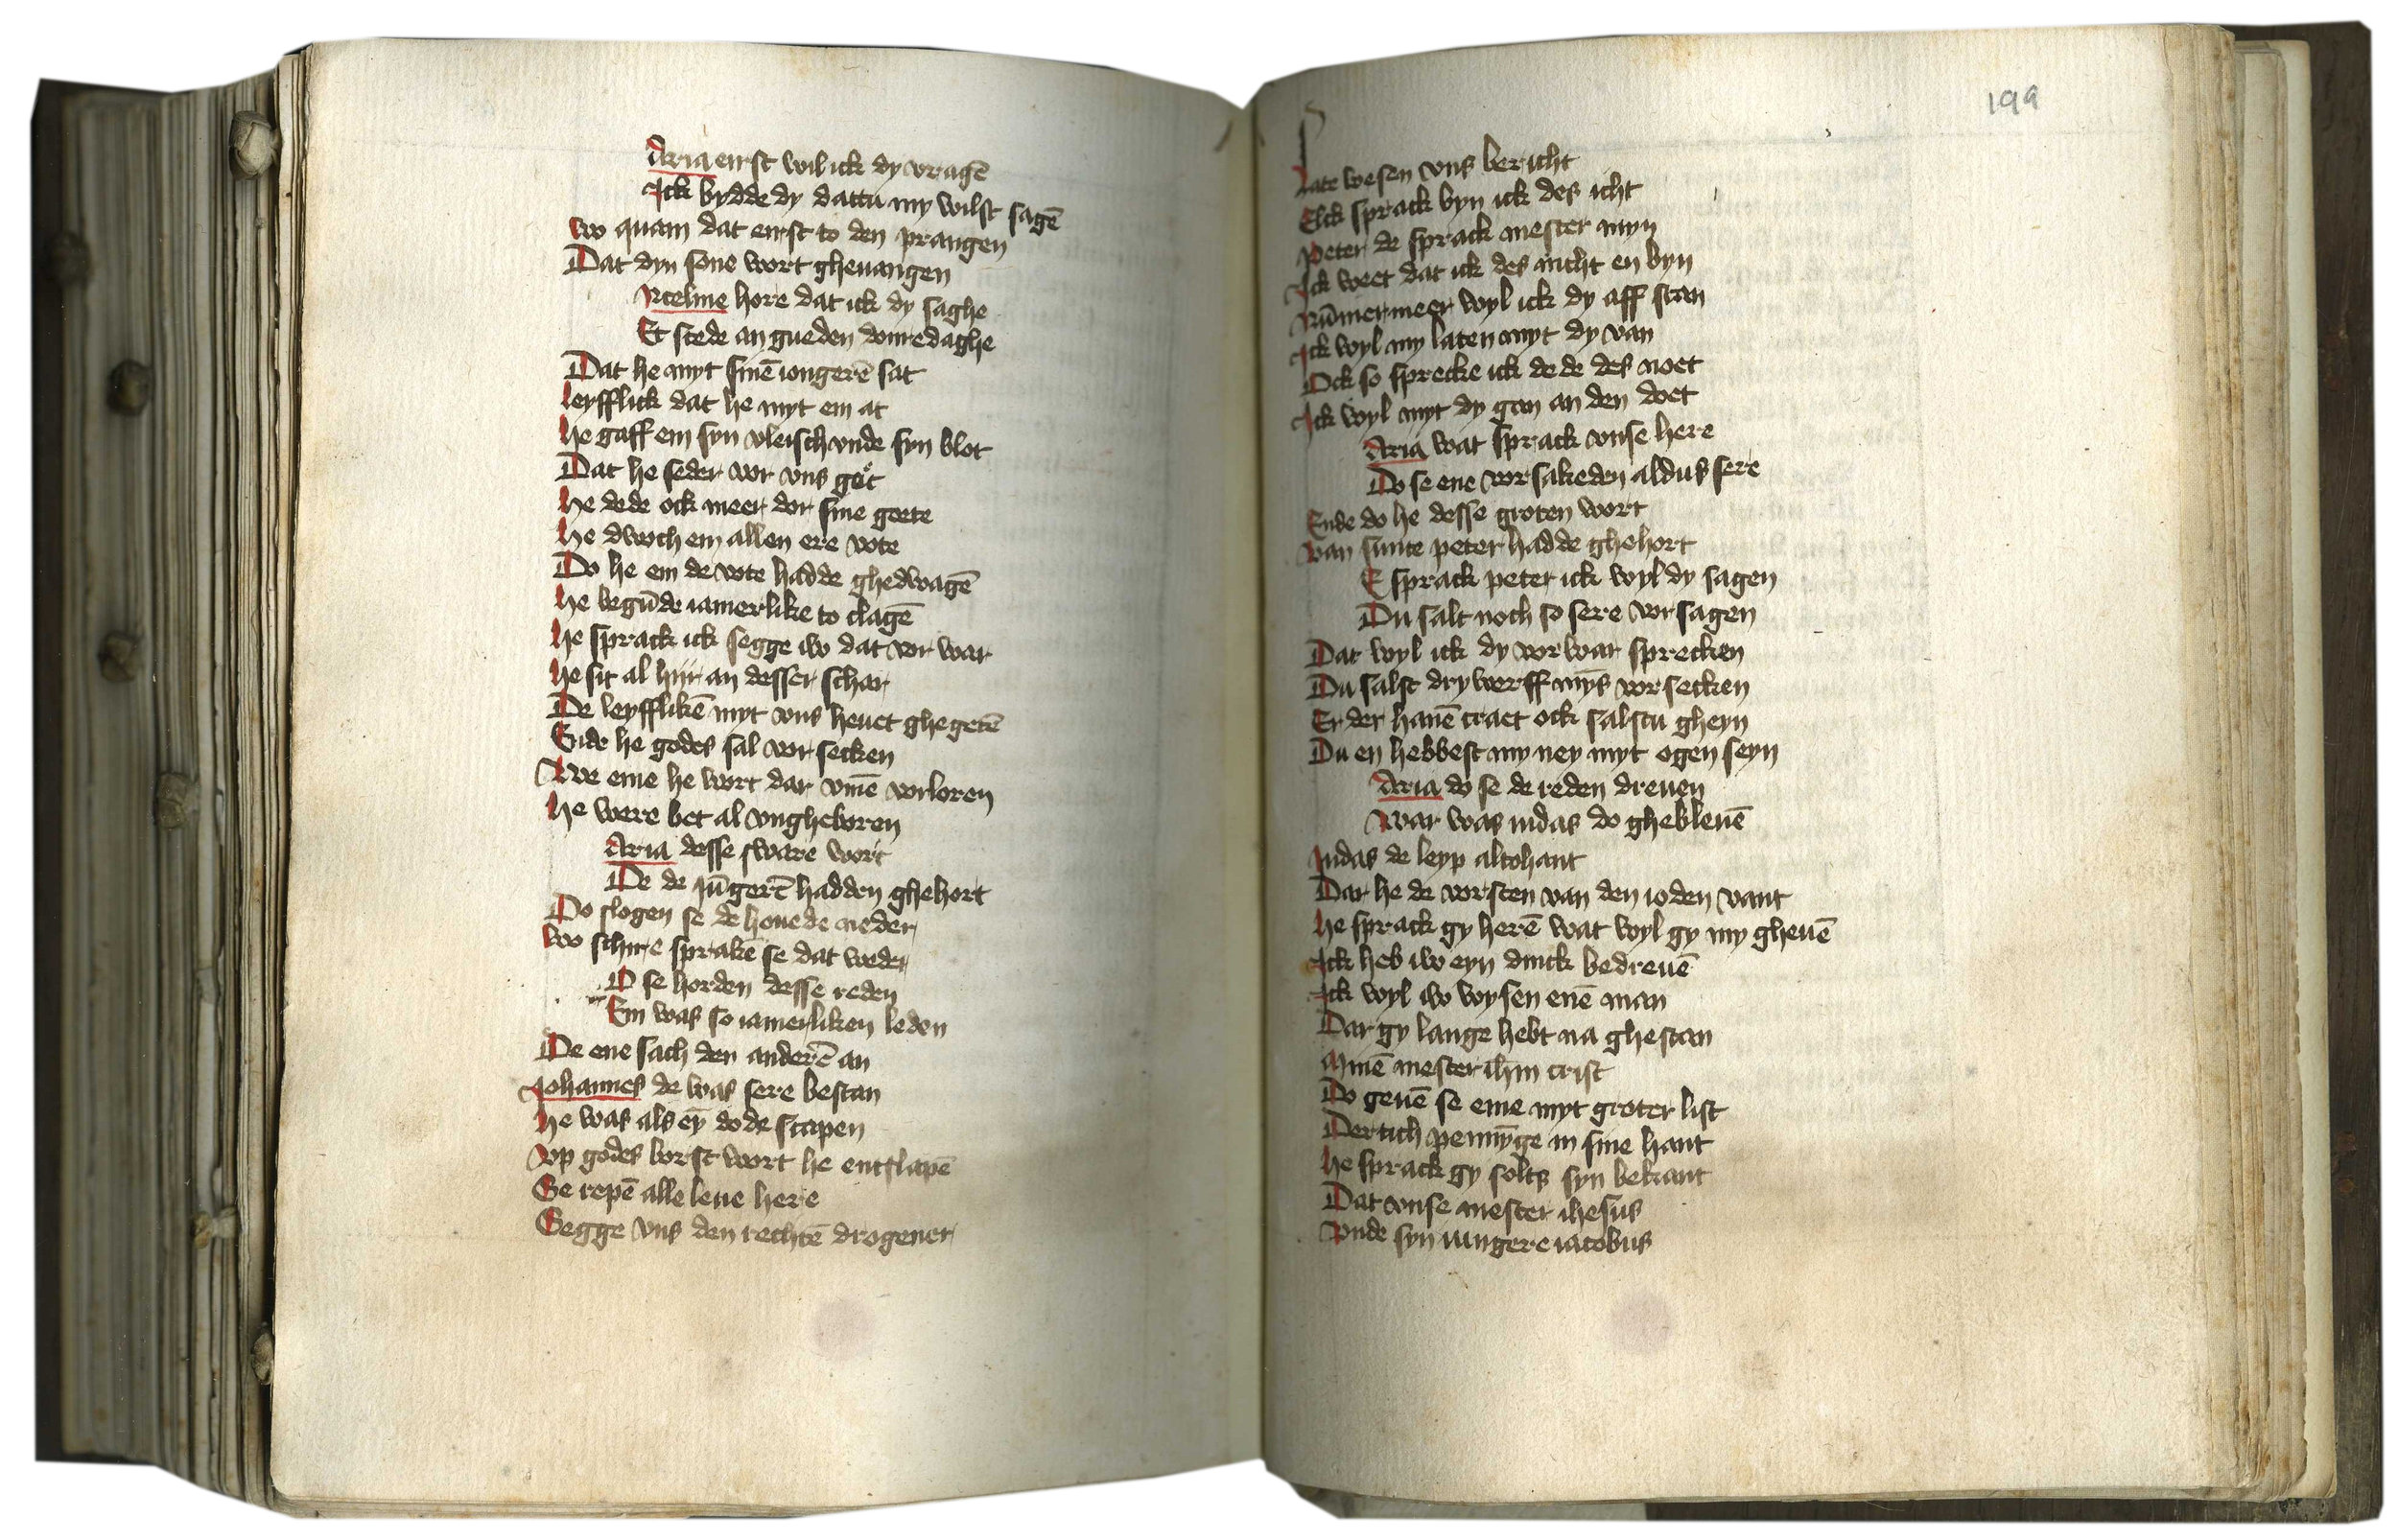 Aria eirst wil ick dy vragē
Ick bydde dy dattu my wilst sagē
wo quam dat eirst to den prangen
Dat dyn sone wort gheuangen
Ncelme hore dat ick dy saghe
Et scede an gueden donredaghe
Dat he myt sinē iongerē sat
leyfflick dat he myt em at
he gaff em syn vleisch vnde syn blot
Dat he seder vor vns goͤt
he dede ock meer dor sine goete
he dwoch em allen ere vote
Do he em de vote hadde ghedwagē
he begūde iamerlike to clagē
he sprack ick segge iw dat vor war
he sit al hiir an desser schar
De leyfflikē myt vns heuet ghegetē
Ende he godes sal vor secken
We eme he wort dar vmē vorloren
he were bet al vngheboren
Aria desse sware wort
De de iūgerē hadden ghehort
Do slogen se de houede neder
wo schire sprakē se dat weder
D se horden desse reden
Em was so iamerliken leden
De ene sach den anderē an
Johannes de was sere bestan
he was als eȳ dode scapen
vp godes borst wort he entslapē
Se repē alle leue here
Segge vns den rechtē drogener
199
late wesen vns bericht
Elck sprack byn ick des icht
Peter de sprack mester myn
Ick weet dat ick des nicht en byn
Nūmermeer wyl ick dy aff stan
Ick wyl my laten myt dy van
Ock so sprecke ick de de des moet
Ick wyl myt dy gan an den doet
Aria wat sprack vnse here
Do se ene vorsakeden aldus sere
Ende do he desse groten wort
van sunte peter hadde ghehort
E sprack peter ick wyl dy sagen
Du salt noch so sere vorsagen
Dat wyl ick dy vorwar sprecken
Du salst dry werff mȳs vorsecken
Er der hanē craet ock salstu gheyn
Du en hebbest my ney myt ogen seyn
Aria do se de reden dreuen
war was iudas do ghebleuē
Judas de leyp altohant
Dar he de vorsten van den ioden vant
he sprack gy herē wat wyl gy my gheuē
Ick heb iw eyn dinck bedreuē
Ick wyl iw wysen enē man
Dar gy lange hebt na ghestan
Minē mester ihm crist
Do geuē se eme myt groter list
Dertich pennȳge in sine hant
he sprack gy solts syn bekant
Dat vnse mester ihesus
Vnde syn iungere iacobus